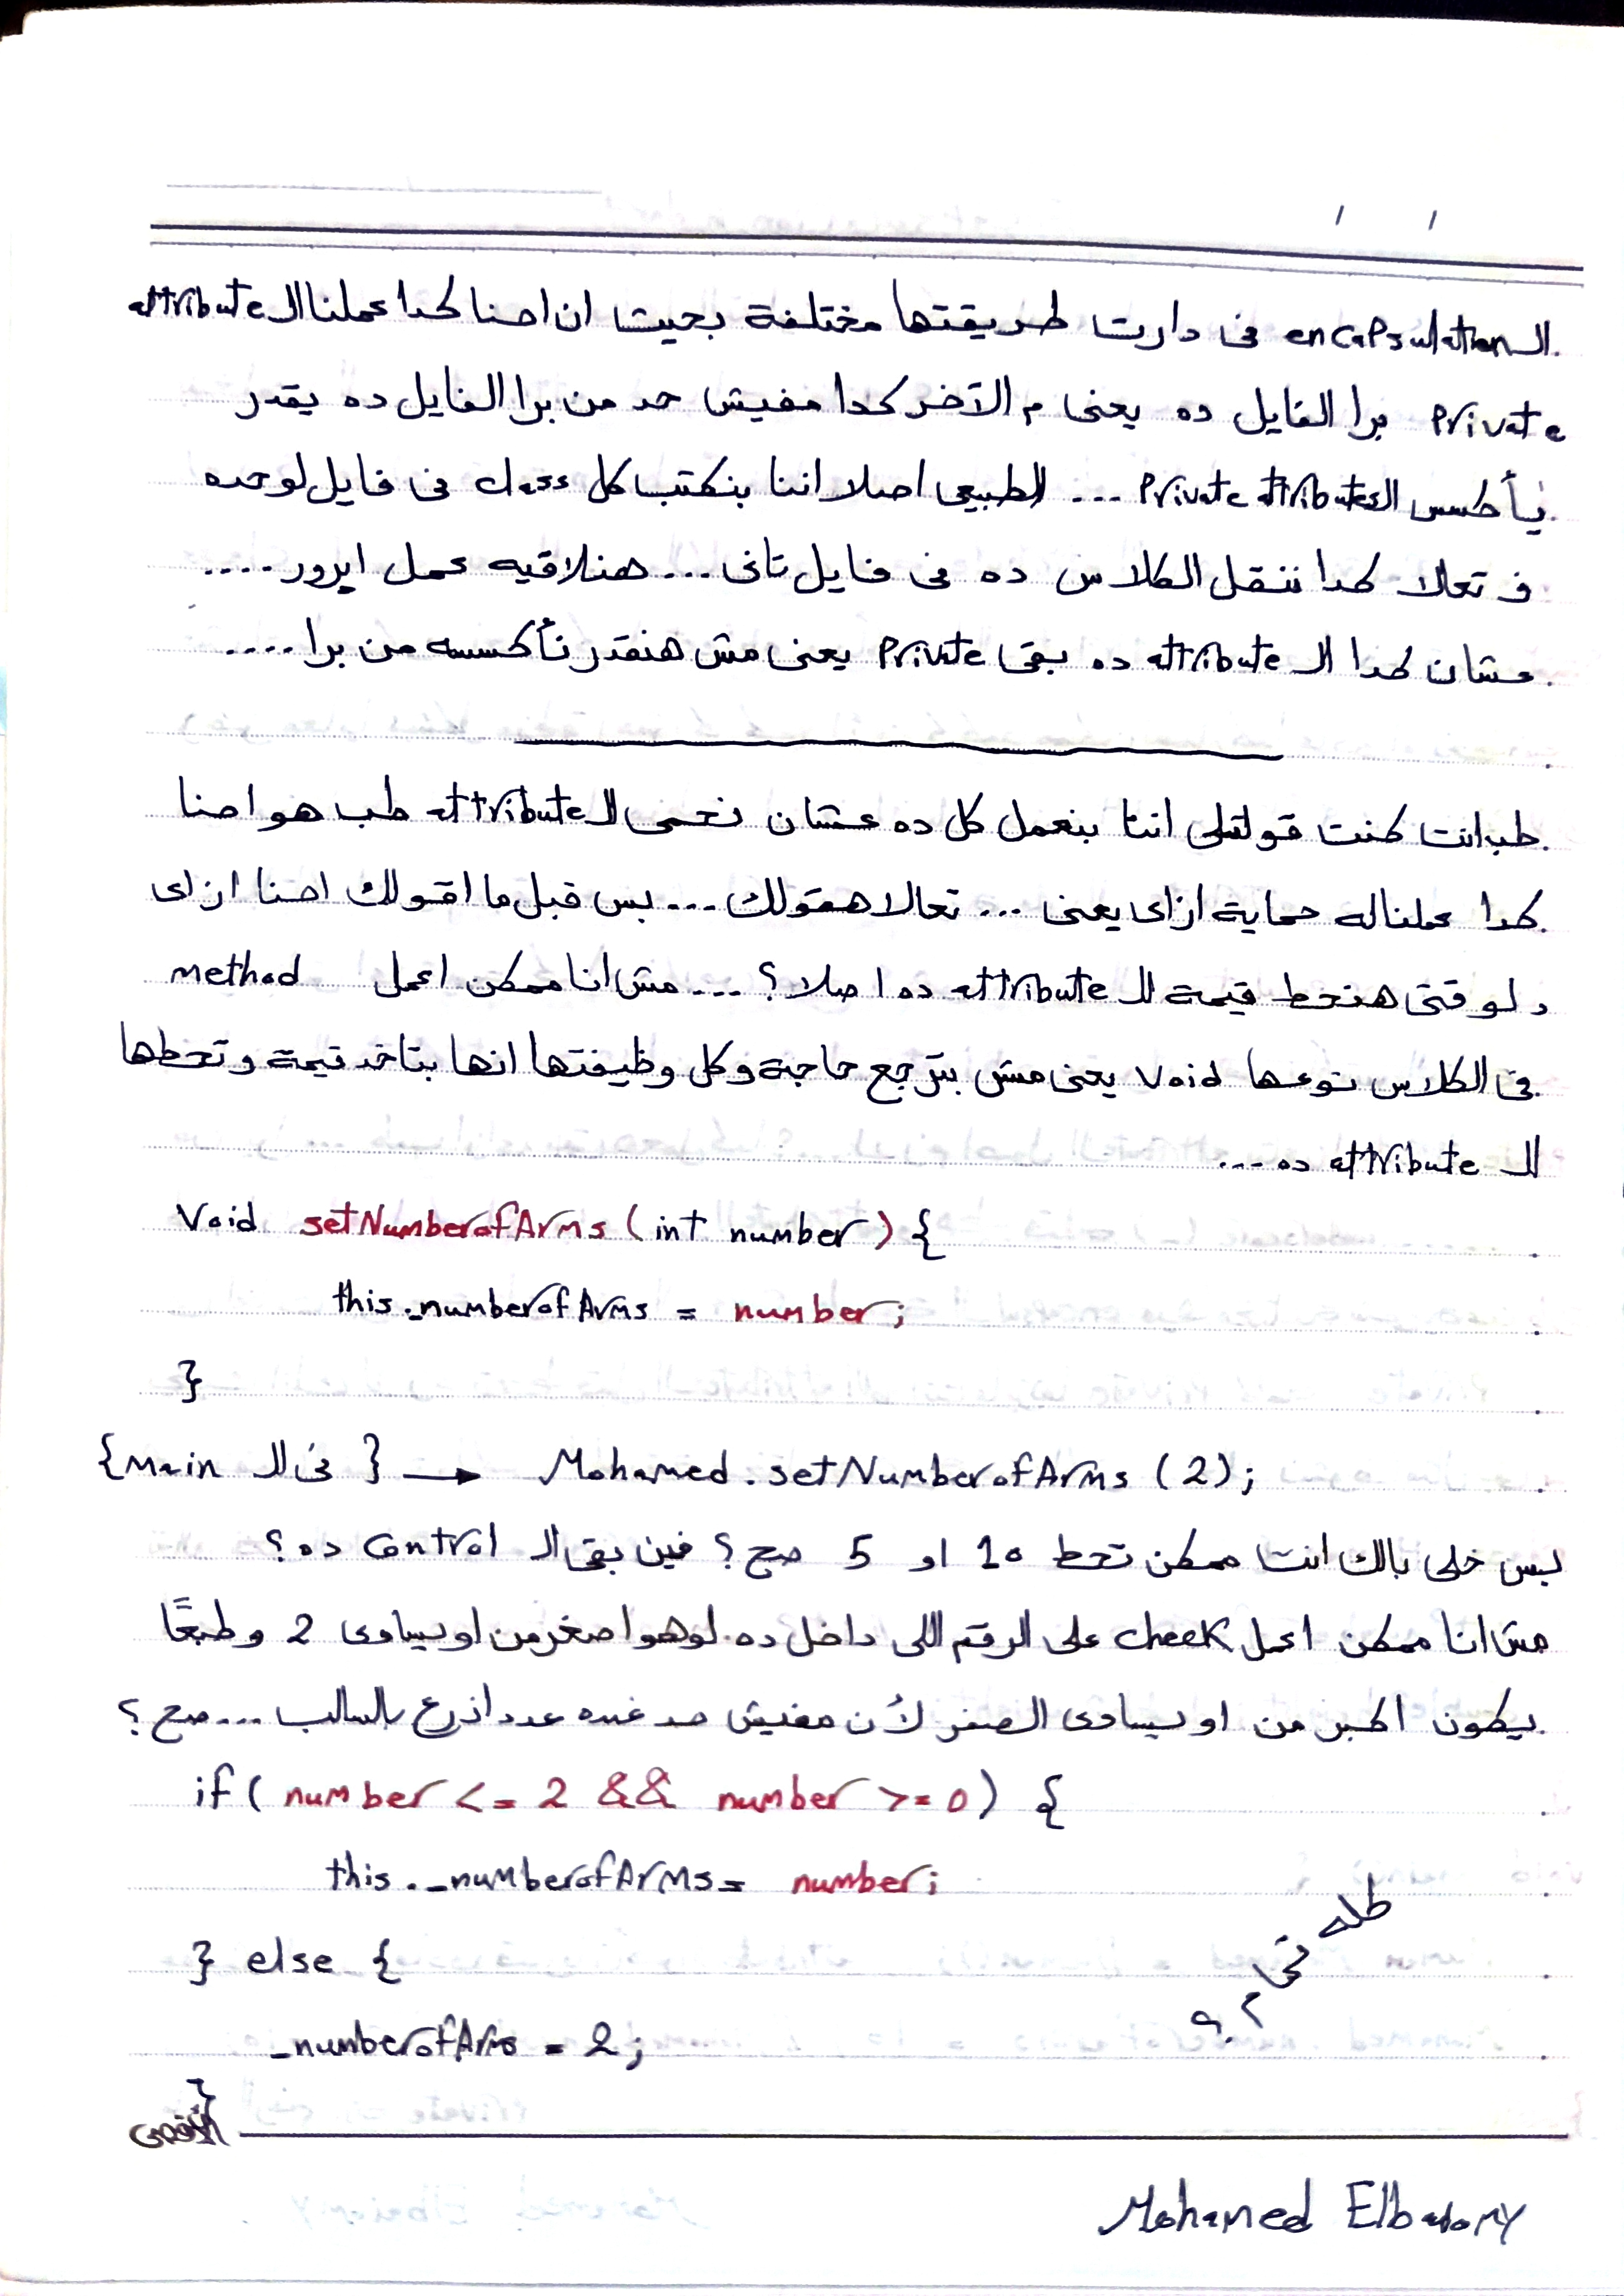 الـ encapsulation فى دارت طريقتها مختلفة بحيث ان احنا كدا عملنا الـ attribute
private برا الفايل ده يعنى م الآخر كدا مفيش حد من برا الفايل ده يقدر
يأكسس الـ private attributes ... الطبيعى اصلا اننا بنكتب كل class فى فايل لوحده
ف تعالا كدا ننقل الكلاس ده فى فايل تانى ... هنلاقيه عمل ايرور ....
عشان كدا الـ attribute ده بقى private يعنى مش هنقدر نأكسسه من برا ....
طب انت كنت قولتلى اننا بنعمل كل ده عشان نحمى الـ attribute طب هو احنا
كدا عملناله حماية ازاى يعنى ... تعالا هقولك ... بس قبل ما اقولك احنا ازاى
دلوقتى هنحط قيمة للـ attribute ده اصلا ؟ ... مش انا ممكن اعمل method
فى الكلاس نوعها void يعنى مش بترجع حاجة وكل وظيفتها انها بتاخد قيمة وتحطها
للـ attribute ده ...
void setNumberofArms (int number) {
this._numberofArms = number;
}
{ فى الـ main } → Mohamed.setNumberofArms (2);
بس خلى بالك انت ممكن تحط 10 او 5 صح ؟ فين بقى الـ control ده ؟
مش انا ممكن اعمل cheek على الرقم اللى داخل ده لو هو اصغر من او يساوى 2 وطبعًا
يكون اكبر من او يساوى الصفر لأن مفيش حد عنده عدد اذرع بالسالب ... صح ؟
if ( number <= 2 && number >= 0) {
this._numberofArms = number;
} else {
_numberofArms = 2;
}
كله تمام ؟
الأقصى
Mohamed Elbadomy